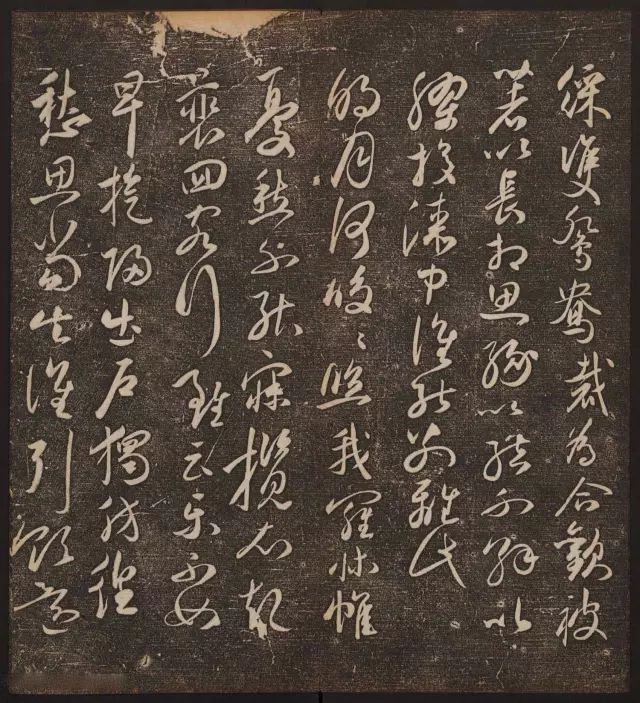 綵雙鴛鴦裁為合歡被
著以長相思緣以結不解以
膠投漆中誰能別離此
明月何皎〻照我羅牀帷
憂愁不能寐攬衣起
裴回客行雖云樂不如
早旋歸出戶獨彷徨
愁思當告誰引領還